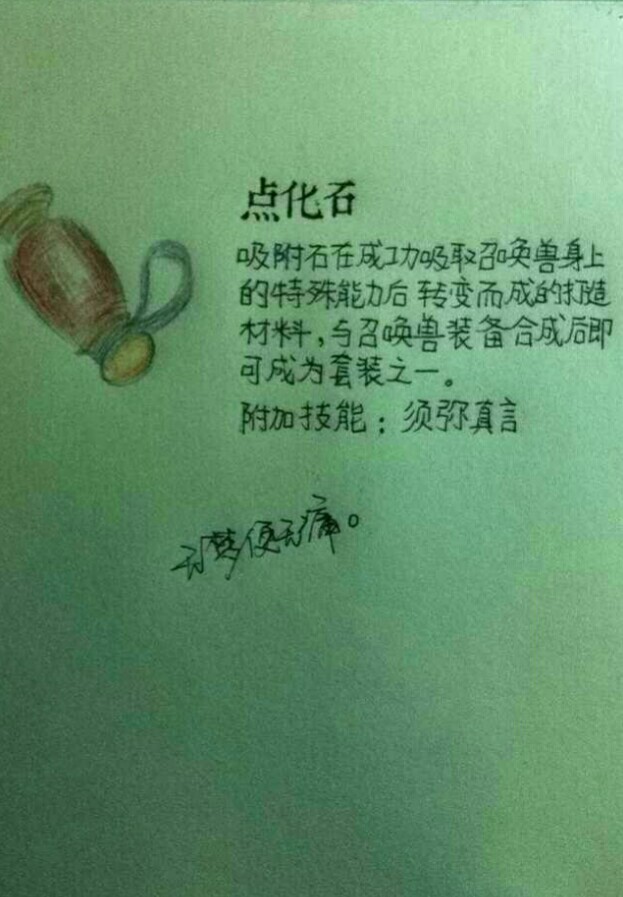 点化石
吸附石在成功吸取召唤兽身上
的特殊能力后转变而成的打造
材料,与召唤兽装备合成后即
可成为套装之一。
附加技能:须弥真言
无梦便无痛。